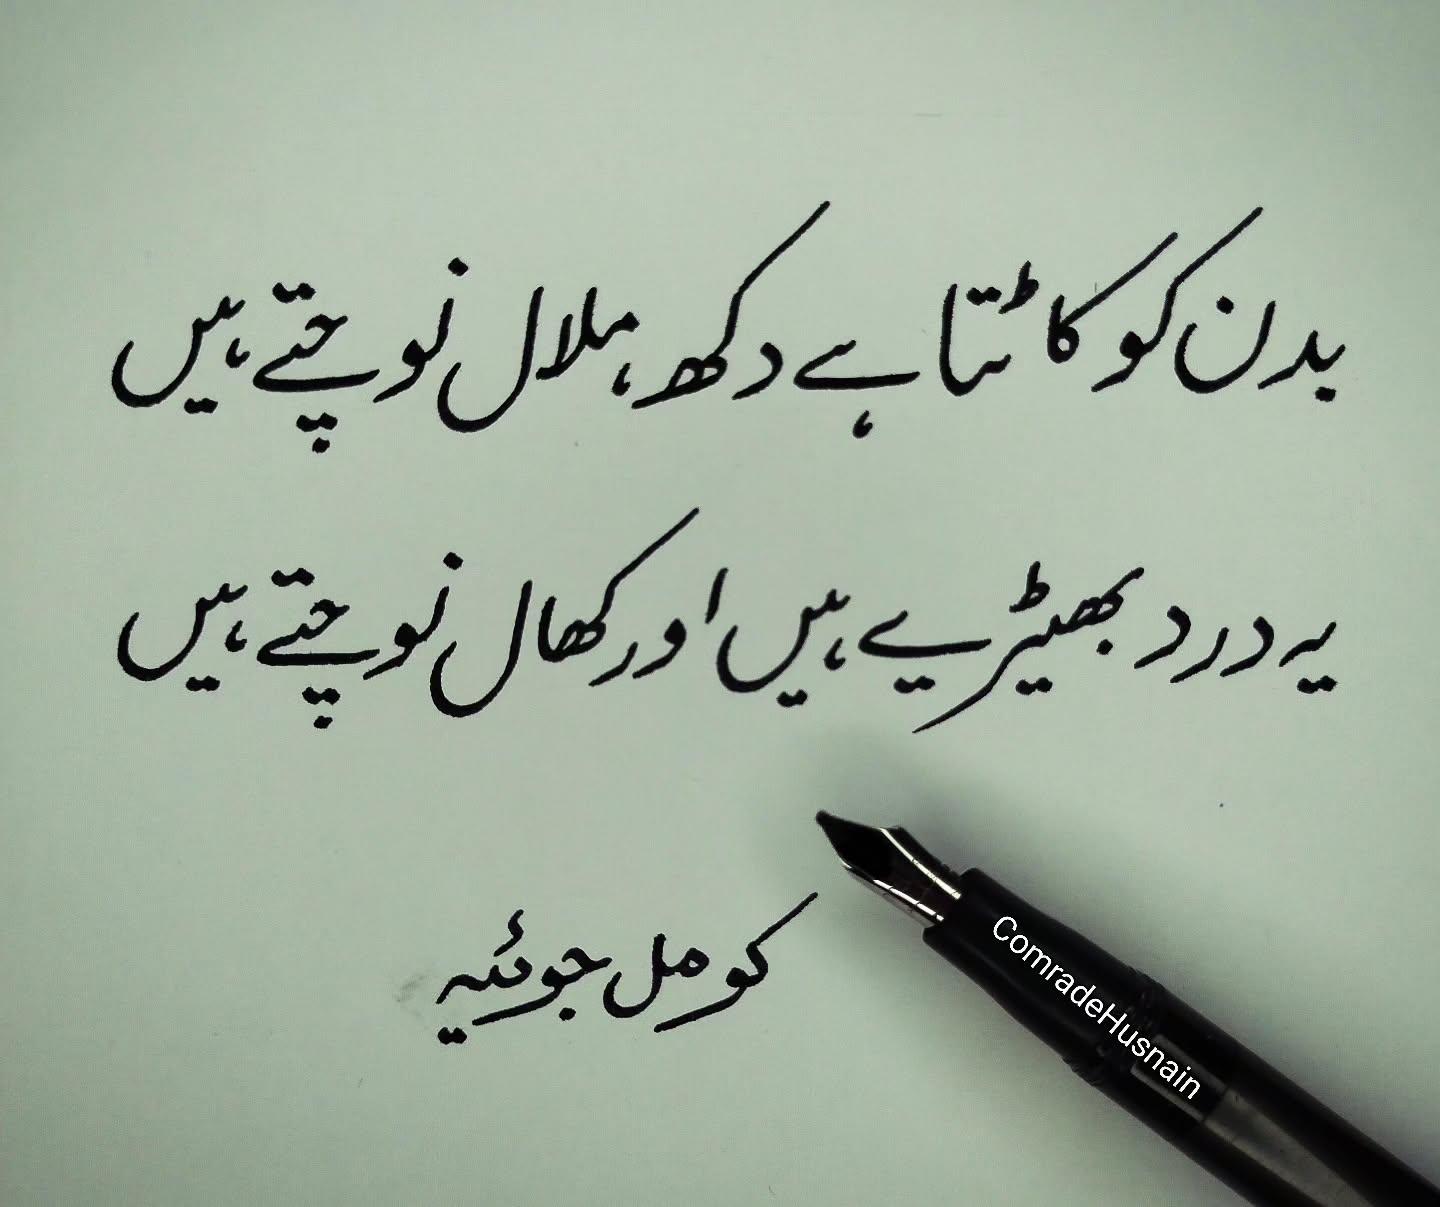 بدن کو کاٹتا ہے دکھ، ملال نوچتے ہیں
یہ درد بھیڑیے ہیں اور کھال نوچتے ہیں
کومل جوئیہ
ComradeHusnain